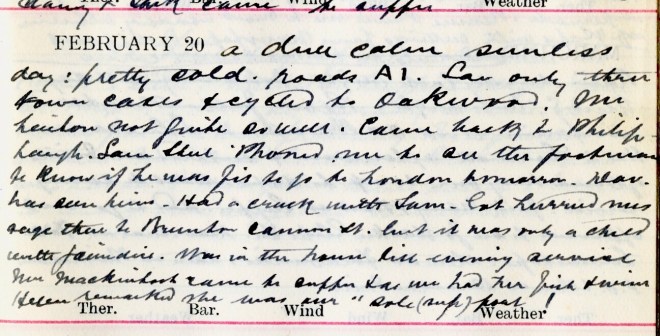 came to supper
Ther. Bar. Wind Weather
FEBRUARY 20 a dull calm sunless
day: pretty cold. roads A1. Saw only three
town cases & cycled to Oakwood. Mr
not quite so well. Came back to Philip-
haugh. Sam Shiel 'Phoned me to see the footman
to know if he was fit to go to London tomorrow. Dav.
has seen him. Had a crack with Sam. Got hurried mes
sage there to Brunton Cannon St. but it was only a child
with jaundice. Was in the house till evening service
Mrs Mackintosh came to supper & as we had her fish & wine
Helen remarked she was our "sole (sup)port!
Ther. Bar. Wind Weather